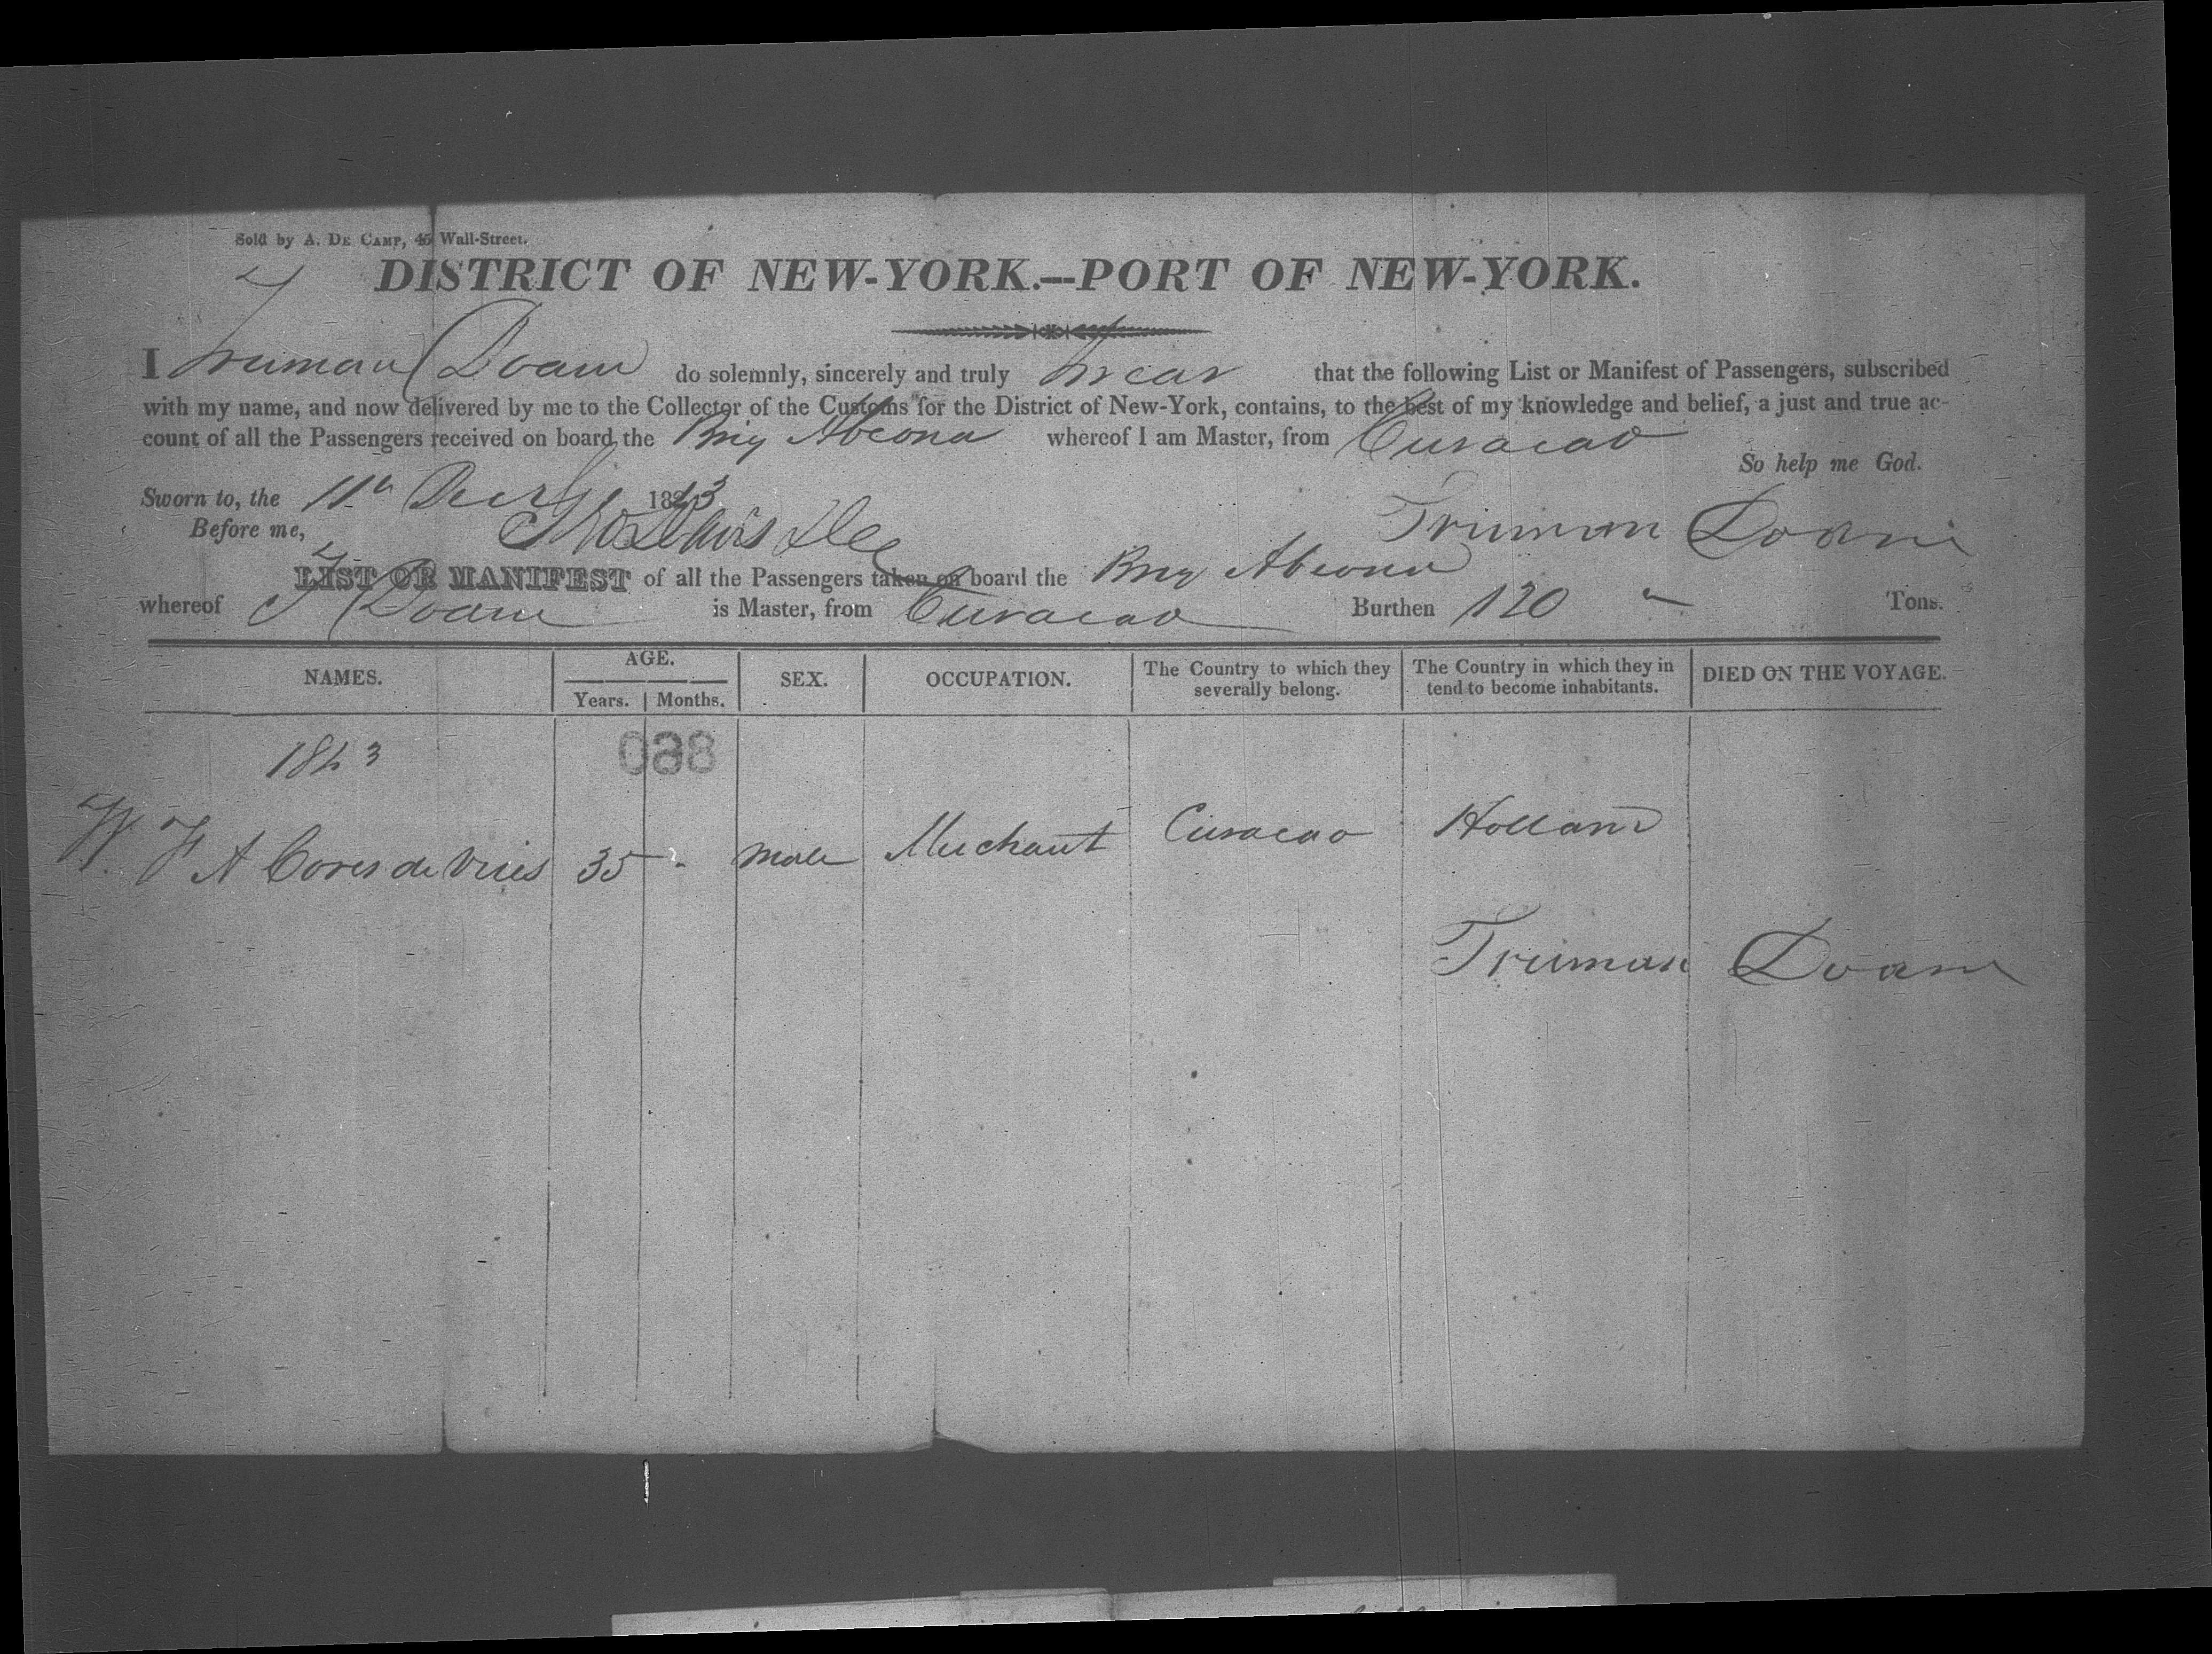 Sold by A. De Camp, 45 Wall-Street.
DISTRICT OF NEW-YORK.--PORT OF NEW-YORK.
I Truman Doane do solemnly, sincerely and truly Swear that the following List or Manifest of Passengers, subscribed
with my name, and now delivered by me to the Collector of the Customs for the District of New-York, contains, to the best of my knowledge and belief, a just and true ac-
count of all the Passengers received on board the Brig Abeona whereof I am Master, from Curacao
So help me God.
Sworn to, the 11th 1843
Before me, Truman Doane
LIST OR MANIFEST of all the Passengers taken on board the Brig Abeona
whereof T Doane is Master, from Curacao Burthen 120 Tons.
NAMES. AGE. SEX. OCCUPATION. The Country to which they severally belong. The Country in which they in tend to become inhabitants. DIED ON THE VOYAGE.
Years. Months.
1843 088
A Cores de Vries 35 - male Merchant Curacao Holland
Truman Doane